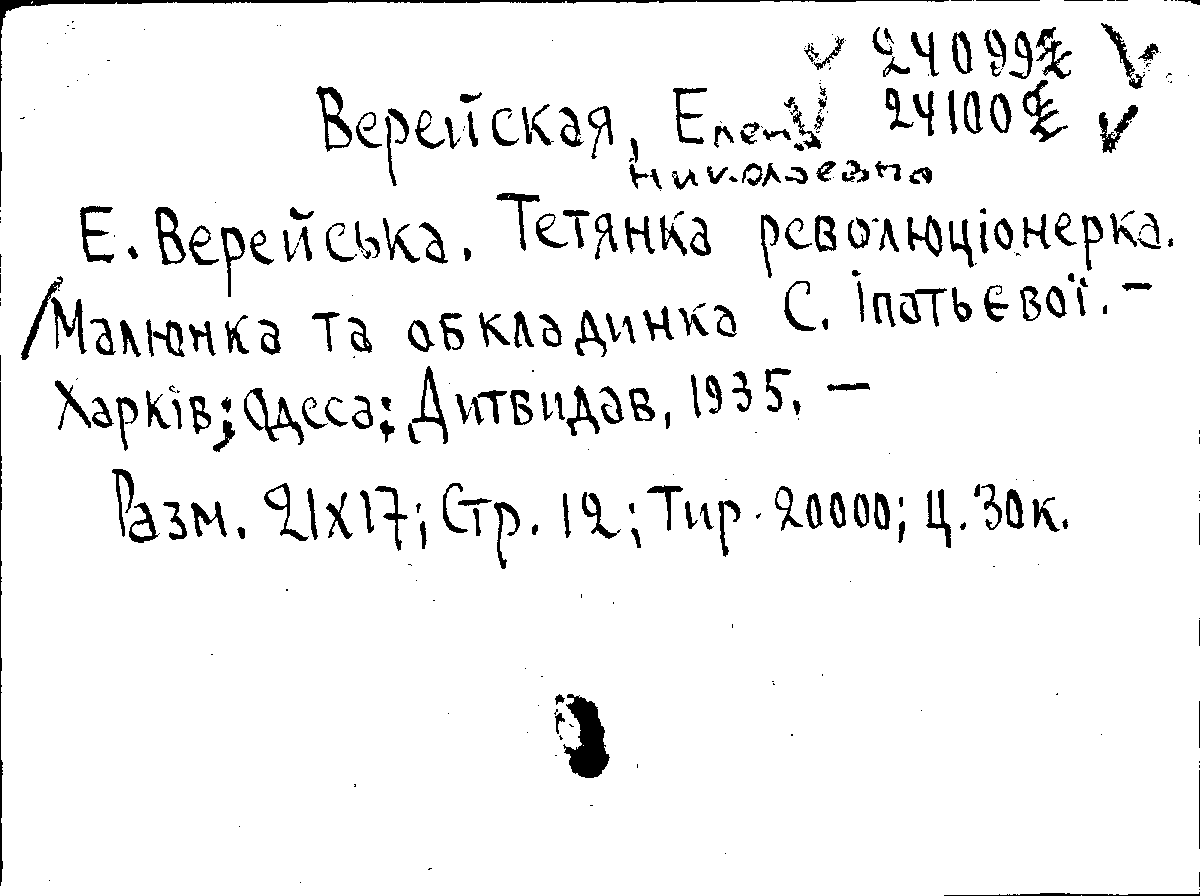 ✓ 24099 ✓
Верейская, Елена ✓ 24100 ✓
Николаевна
Е. Верейська. Тетянка революціонерка.
/Малюнка та обкладинка С. Іпатьєвої. –
Харків; Одеса: Дитвидав, 1935. –
Разм. 21х17; Стр. 12; Тир. 20000; ц. 30к.